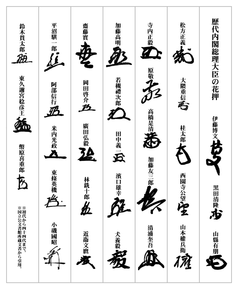 歴代内閣総理大臣の花押
伊藤博文
黒田清隆
山縣有朋
松方正義
大隈重信
桂太郎
西園寺公望
山本權兵衛
寺内正毅
原敬
高橋是清
加藤友三郎
清浦奎吾
加藤高明
若槻禮次郎
田中義一
濱口雄幸
犬養毅
齋藤實
岡田啓介
廣田弘毅
林銑十郎
近衛文麿
平沼騏一郎
阿部信行
米内光政
東條英機
小磯國昭
鈴木貫太郎
東久邇宮稔彦王
幣原喜重郎